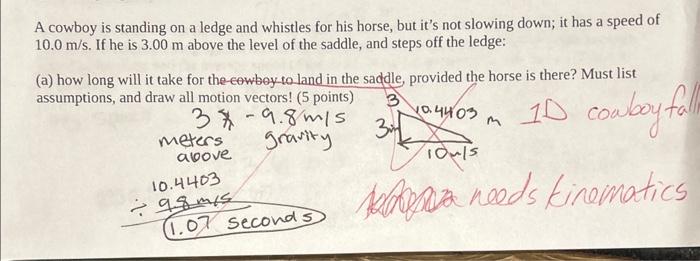 A cowboy is standing on a ledge and whistles for his horse, but it's not slowing down; it has a speed of
10.0 m/s. If he is 3.00 m above the level of the saddle, and steps off the ledge:
(a) how long will it take for the cowboy to land in the saddle, provided the horse is there? Must list
assumptions, and draw all motion vectors! (5 points)
3 - 9.8 m/s
meters gravity
above
3
10.4403 m
3m
10 m/s
1D cowboy fall
10.4403
÷ 9.8 m/s
1.07 seconds
needs kinematics